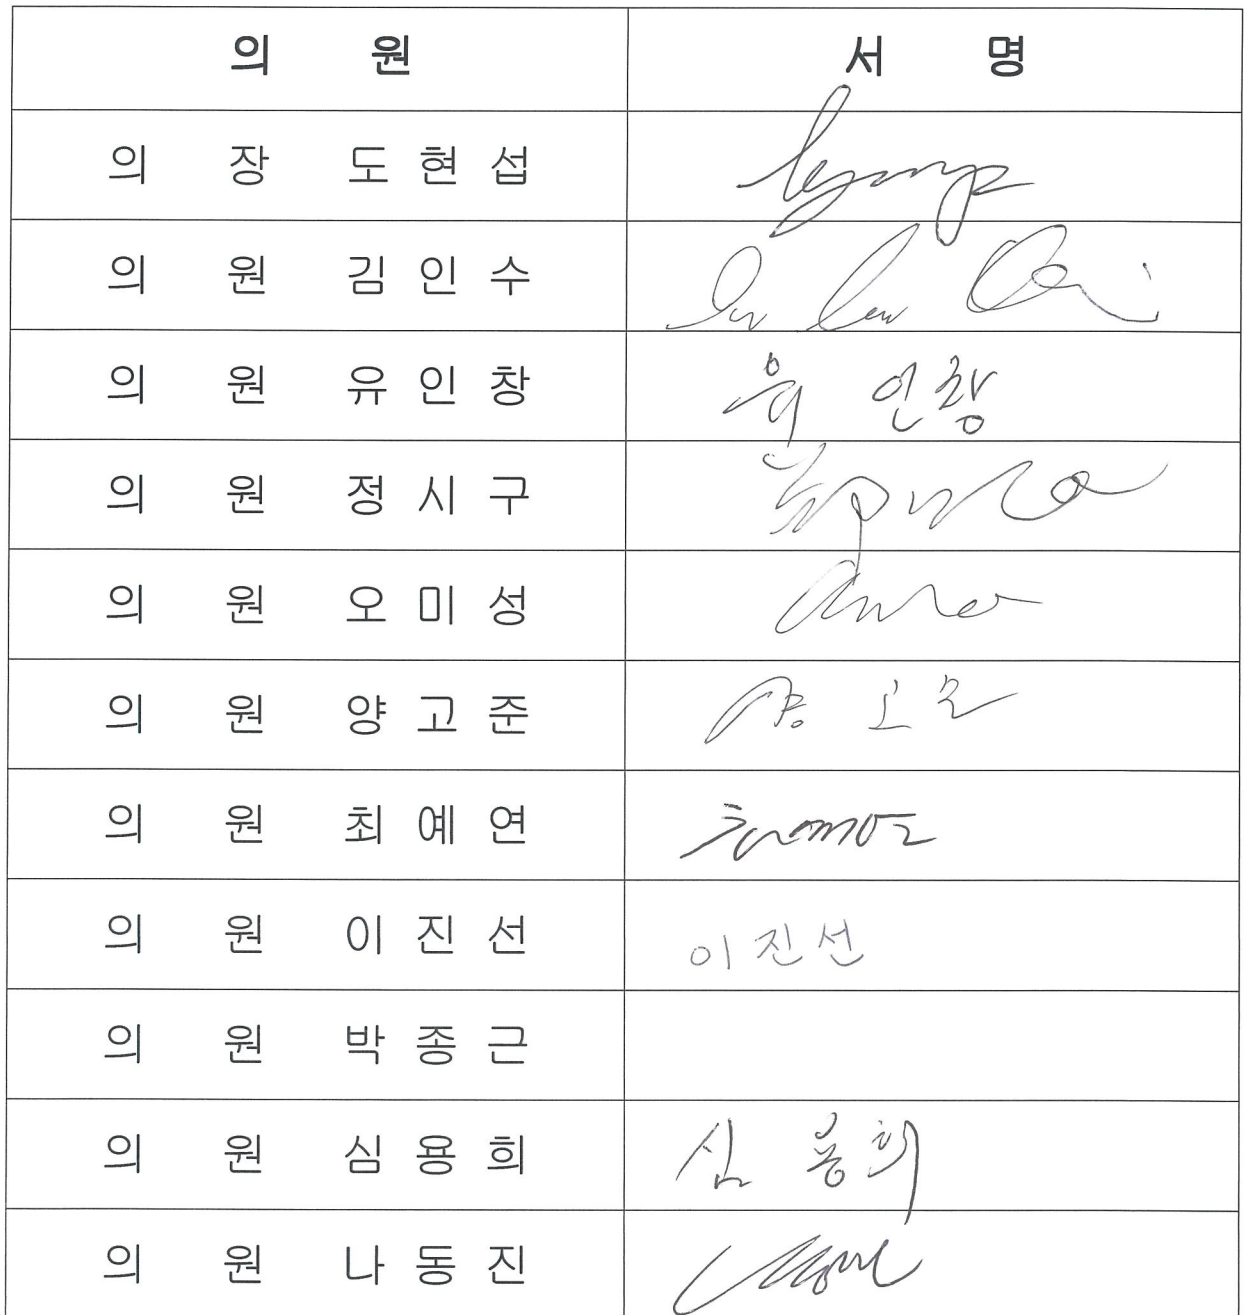 의 원 서 명
의 장 도 현 섭
의 원 김 인 수
의 원 유 인 창 유 인창
의 원 정 시 구
의 원 오 미 성
의 원 양 고 준 양 고준
의 원 최 예 연
의 원 이 진 선 이 진선
의 원 박 종 근
의 원 심 용 희 심 용희
의 원 나 동 진